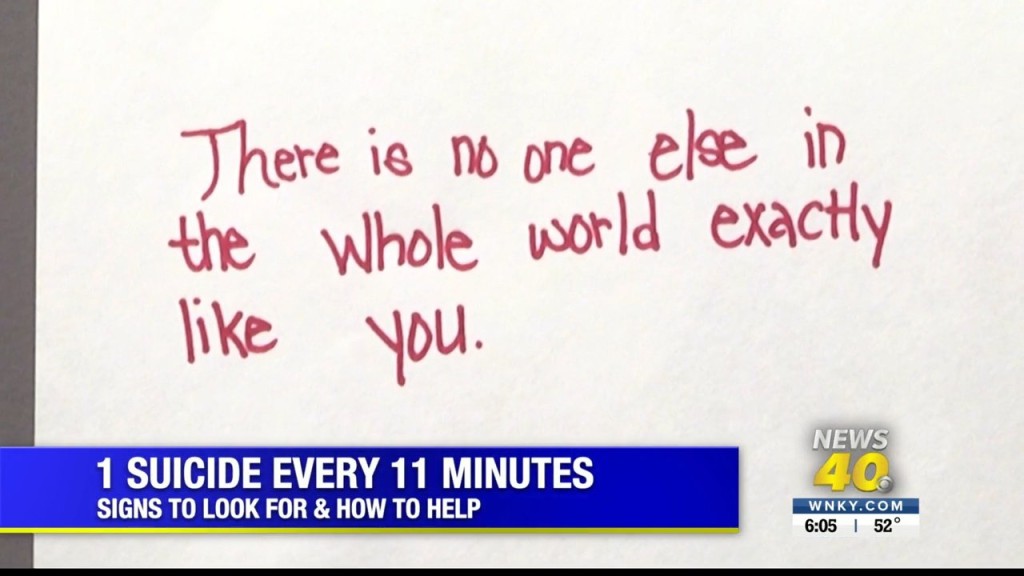 There is no one else in
the whole world exactly
like you.
1 SUICIDE EVERY 11 MINUTES
SIGNS TO LOOK FOR & HOW TO HELP
NEWS
40
WNKY.COM
6:05 | 52°